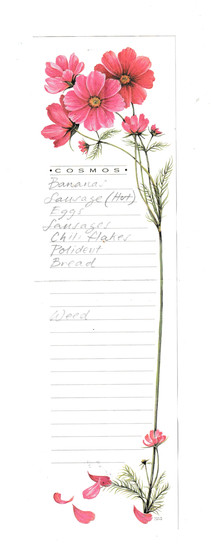 • COSMOS •
Bananas
Sausage (Hot)
Eggs
Sausages
Chili flakes
Polident
Bread
Weed